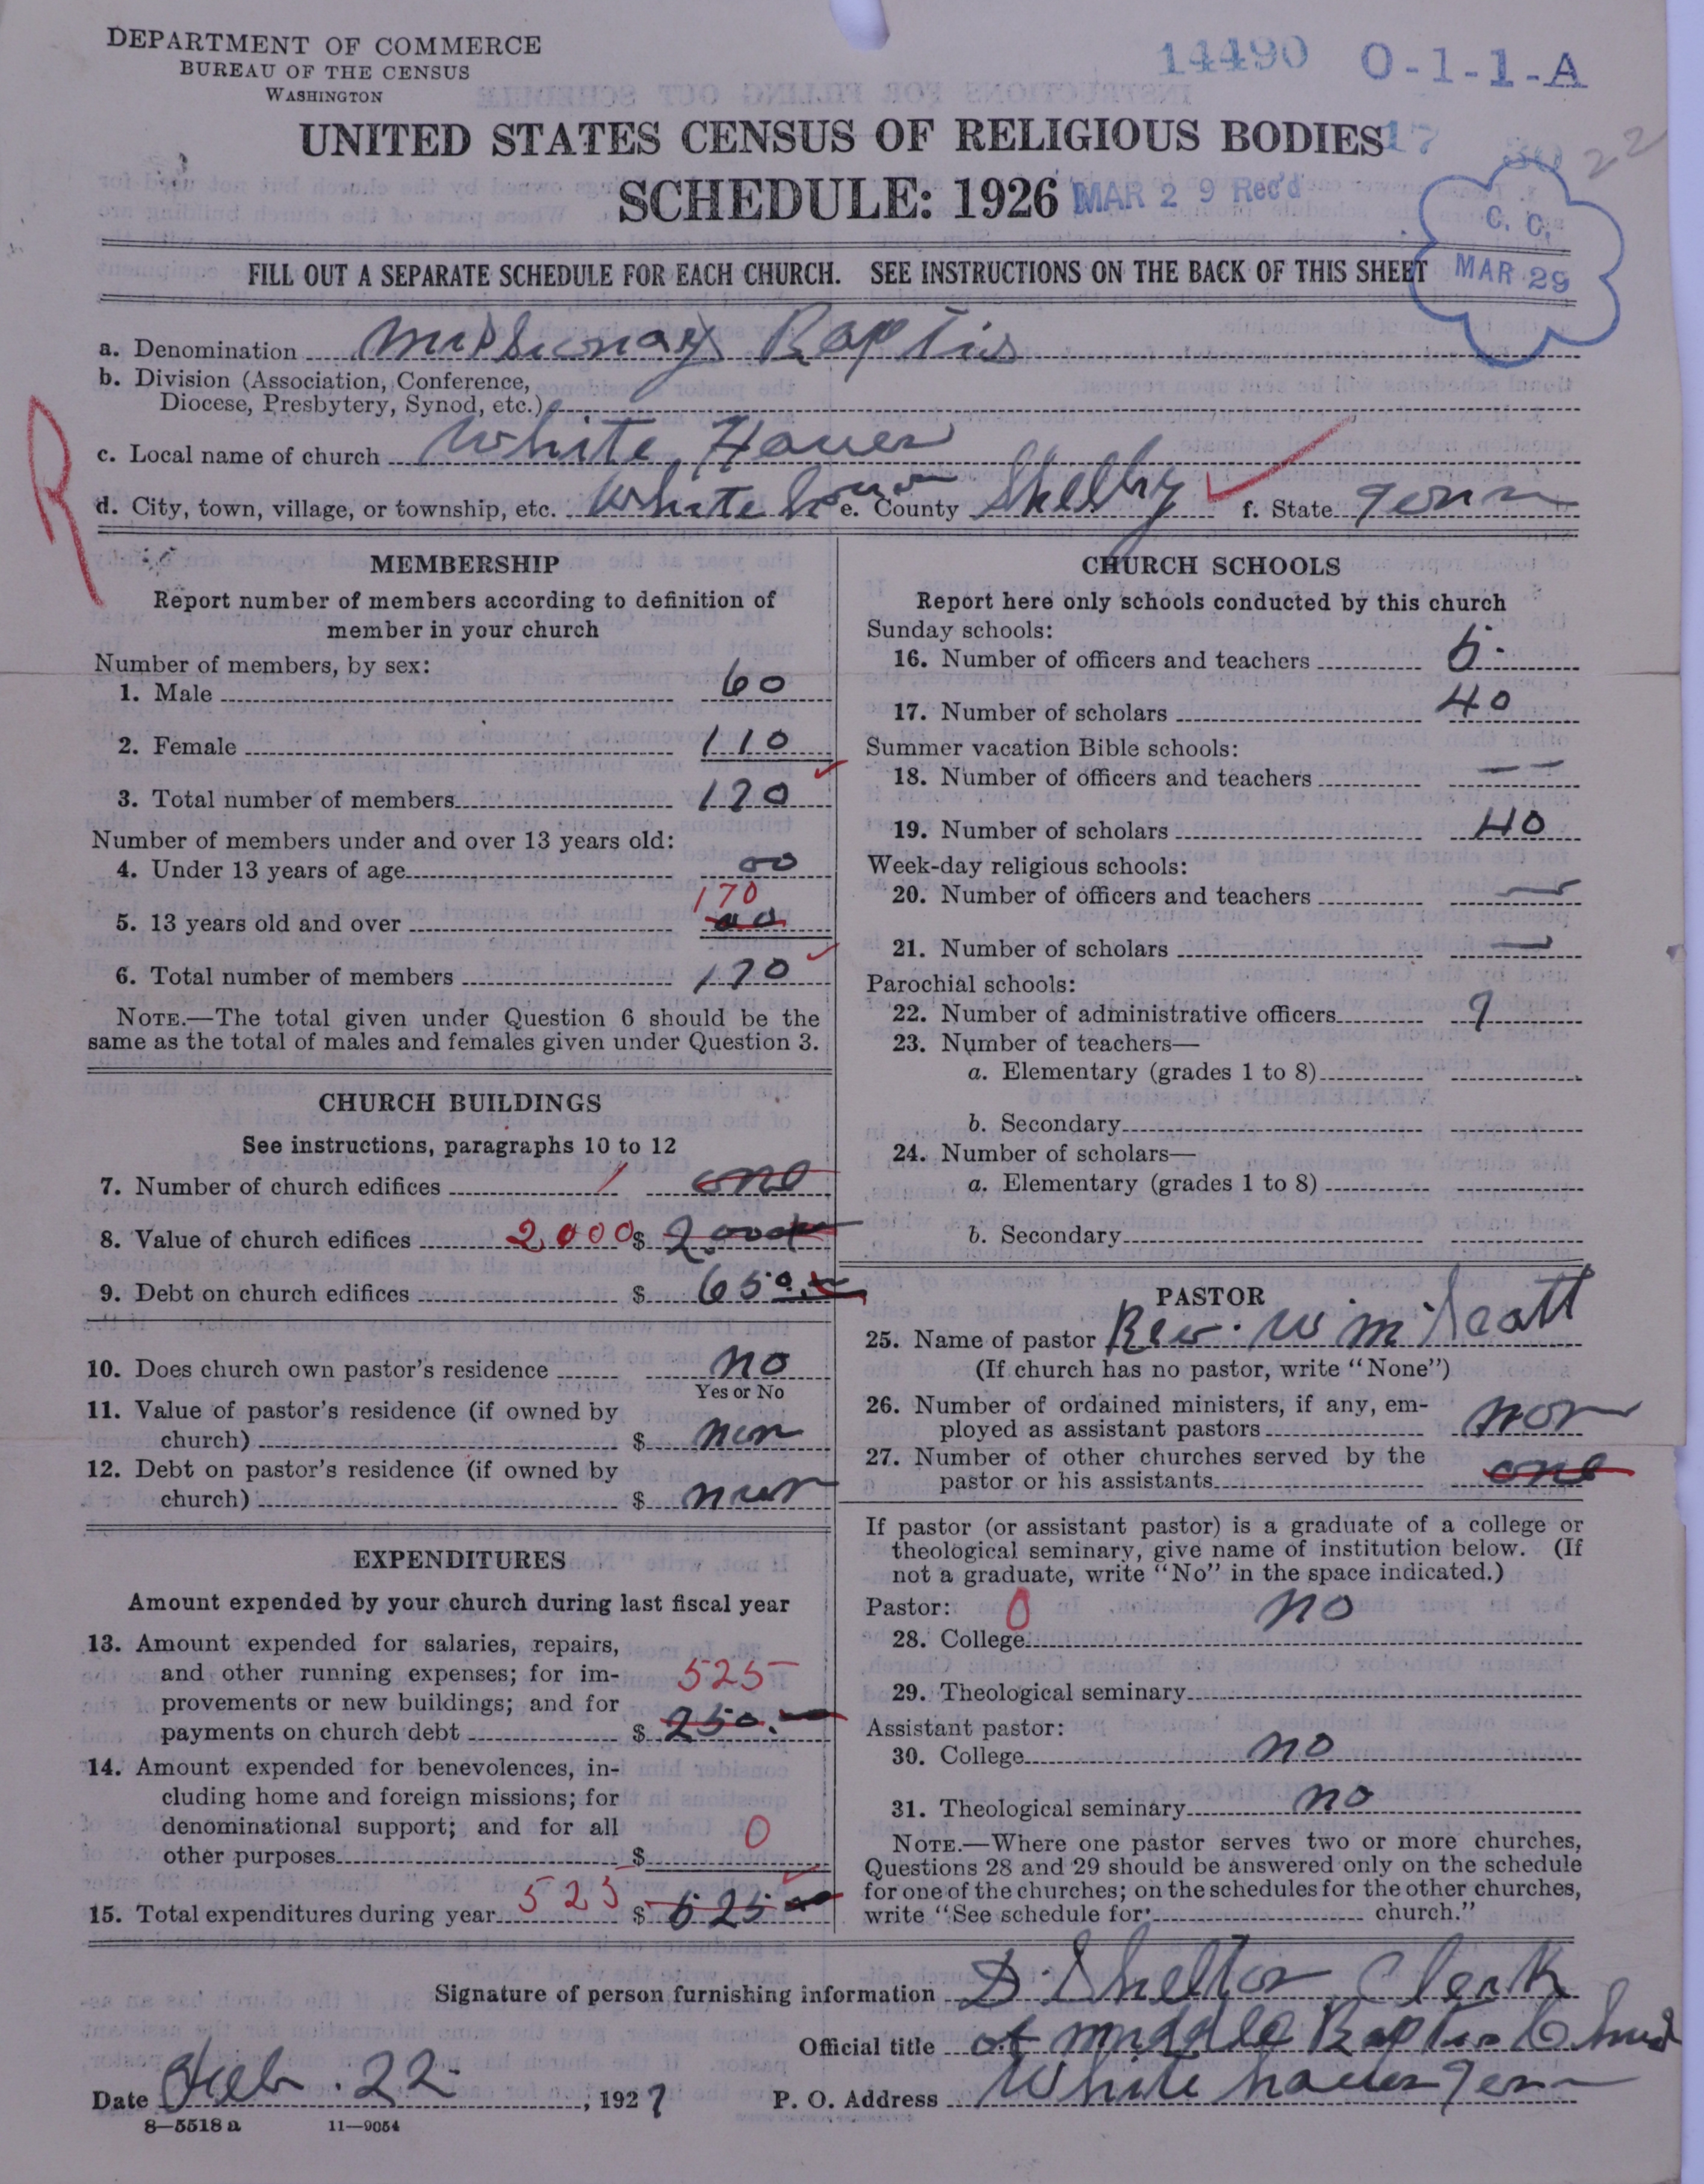 DEPARTMENT OF COMMERCE
BUREAU OF THE CENSUS
WASHINGTON
14490 O-1-1-A
UNITED STATES CENSUS OF RELIGIOUS BODIES
17
22
SCHEDULE: 1926
MAR 29 Rec'd
C. C.
MAR 29
FILL OUT A SEPARATE SCHEDULE FOR EACH CHURCH. SEE INSTRUCTIONS ON THE BACK OF THIS SHEET
R
a. Denomination Missionary Baptis
b. Division (Association, Conference,
Diocese, Presbytery, Synod, etc.)
c. Local name of church White Haven
d. City, town, village, or township, etc. White haven e. County Shelby f. State Tenn
MEMBERSHIP
Report number of members according to definition of
member in your church
Number of members, by sex:
1. Male 60
2. Female 110
3. Total number of members 170
Number of members under and over 13 years old:
4. Under 13 years of age 00
170
5. 13 years old and over 00
6. Total number of members 170
NOTE.—The total given under Question 6 should be the
same as the total of males and females given under Question 3.
CHURCH BUILDINGS
See instructions, paragraphs 10 to 12
7. Number of church edifices 1 one
8. Value of church edifices 2,000 $ 2,000
9. Debt on church edifices $ 650
10. Does church own pastor's residence no
Yes or No
11. Value of pastor's residence (if owned by
church) $ non
12. Debt on pastor's residence (if owned by
church) $ non
EXPENDITURES
Amount expended by your church during last fiscal year
13. Amount expended for salaries, repairs,
and other running expenses; for im- 525
provements or new buildings; and for
payments on church debt $ 250.
14. Amount expended for benevolences, in-
cluding home and foreign missions; for
denominational support; and for all
other purposes $ 0
15. Total expenditures during year 525 $ 525
CHURCH SCHOOLS
Report here only schools conducted by this church
Sunday schools:
16. Number of officers and teachers 6
17. Number of scholars 40
Summer vacation Bible schools:
18. Number of officers and teachers — —
19. Number of scholars 40
Week-day religious schools:
20. Number of officers and teachers —
21. Number of scholars —
Parochial schools:
22. Number of administrative officers 9
23. Number of teachers—
a. Elementary (grades 1 to 8)
b. Secondary
24. Number of scholars—
a. Elementary (grades 1 to 8)
b. Secondary
PASTOR
25. Name of pastor Rev. Wm Scott
(If church has no pastor, write "None")
26. Number of ordained ministers, if any, em-
ployed as assistant pastors non
27. Number of other churches served by the
pastor or his assistants one
If pastor (or assistant pastor) is a graduate of a college or
theological seminary, give name of institution below. (If
not a graduate, write "No" in the space indicated.)
Pastor: 0
28. College no
29. Theological seminary
Assistant pastor:
30. College no
31. Theological seminary no
NOTE.—Where one pastor serves two or more churches,
Questions 28 and 29 should be answered only on the schedule
for one of the churches; on the schedules for the other churches,
write "See schedule for church."
Signature of person furnishing information D. Shelton Clerk
Official title of middle Baptis Church
Date Feb. 22 , 1927 P. O. Address White haven Tenn
8—5518 a 11—9054